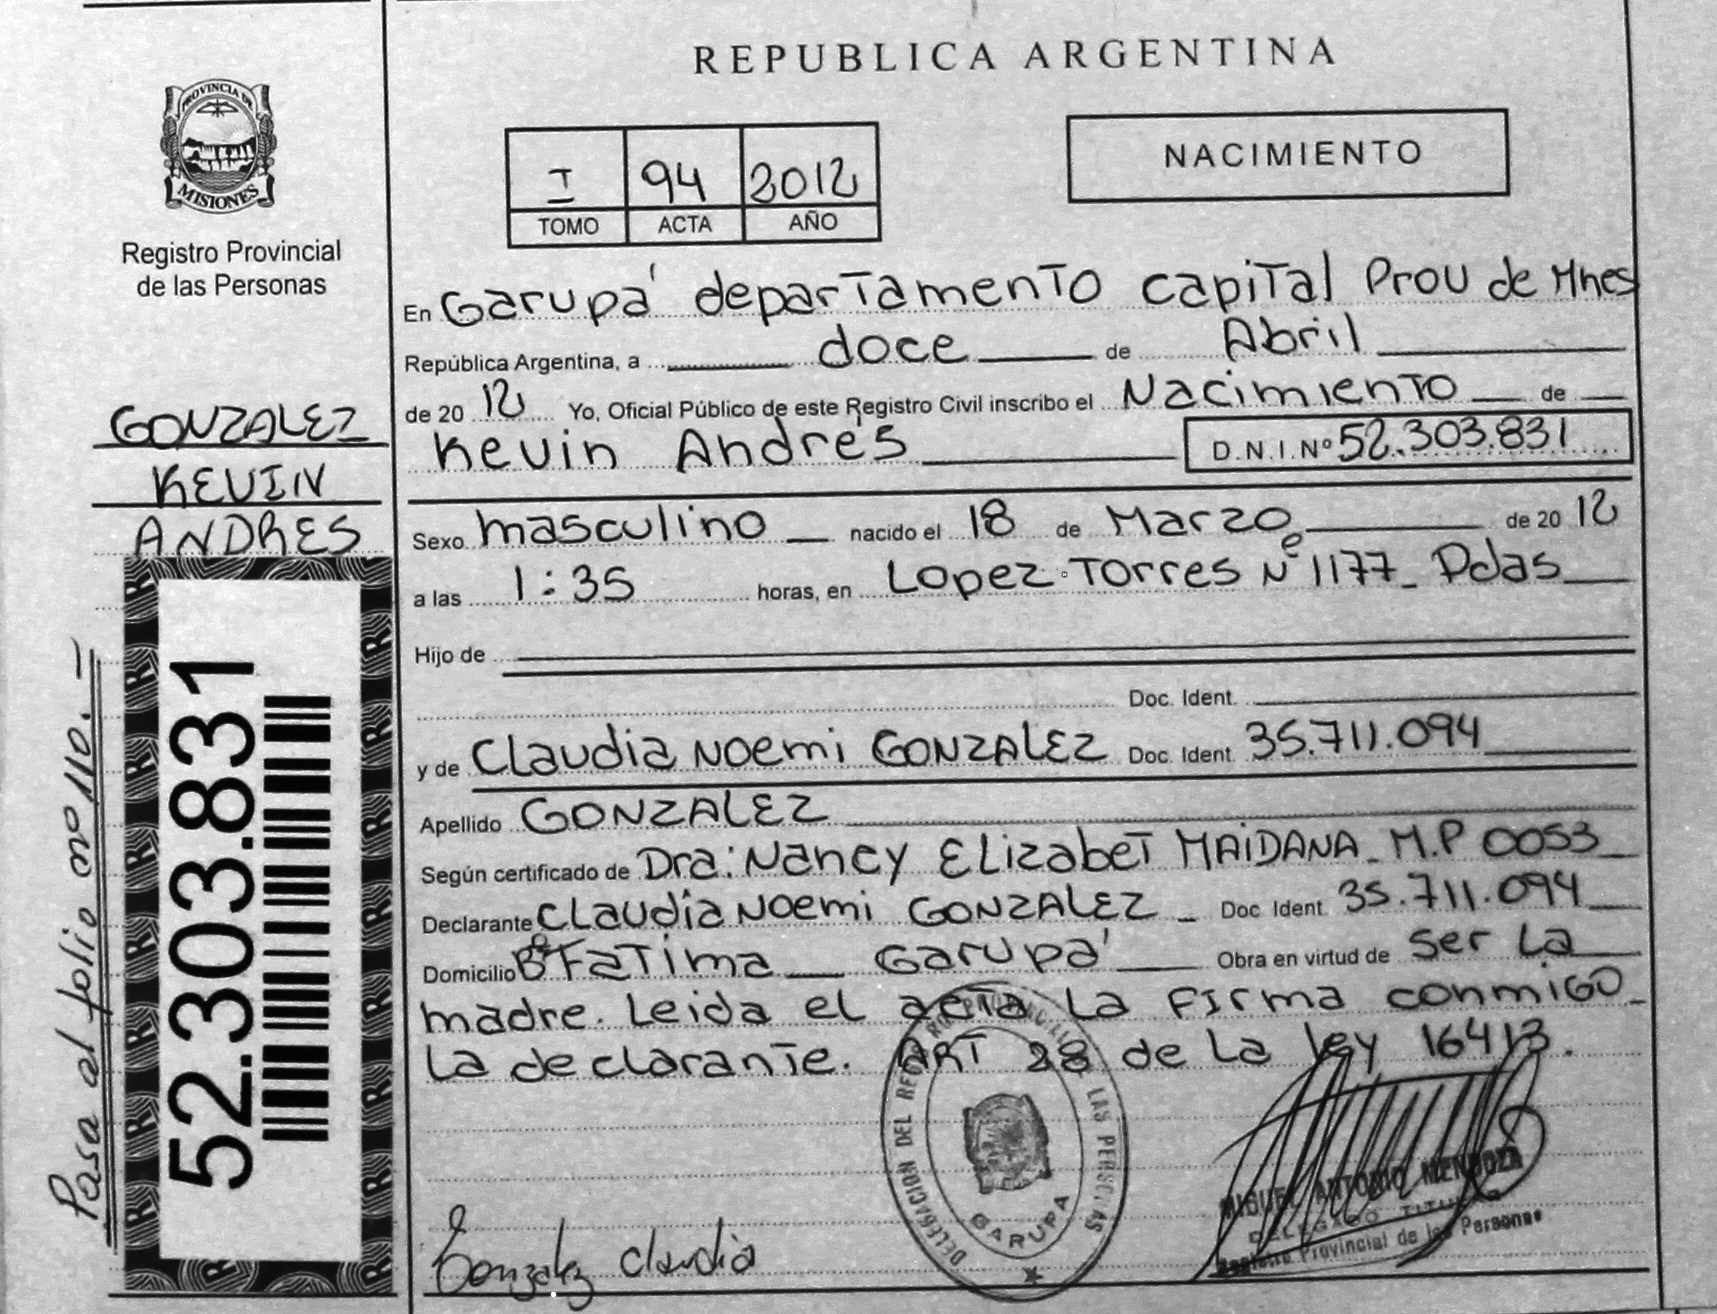 REPUBLICA ARGENTINA
PROVINCIA DE
MISIONES
Registro Provincial
de las Personas
I 94 2012
TOMO ACTA AÑO
NACIMIENTO
En Garupá departamento capital Prov de Mnes
República Argentina, a doce de Abril
de 20 12 Yo, Oficial Público de este Registro Civil inscribo el Nacimiento de
Kevin Andrés D.N.I. Nº 52.303.831
GONZALEZ
KEVIN
ANDRES
Sexo masculino nacido el 18 de Marzo de 20 12
a las 1:35 horas, en Lopez Torres Nº 1177_ Pdas
Hijo de
Doc. Ident.
y de Claudia Noemi GONZALEZ Doc. Ident. 35.711.094
Apellido GONZALEZ
Según certificado de Dra: Nancy Elizabet MAIDANA_ M.P 0053
Declarante Claudia Noemi GONZALEZ _ Doc Ident. 35.711.094
Domicilio Bº Fatima Garupá Obra en virtud de ser la
madre. Leida el acta la firma conmigo
la declarante. ART 28 de la ley 16413.
52.303.831
Pasa al folio nº 110.-
DELEGACION DEL REG. PROVINCIAL DE LAS PERSONAS
GARUPA
Gonzalez Claudia
MIGUEL ANTONIO MENDOZA
DELEGADO TITULAR
Registro Provincial de las Personas